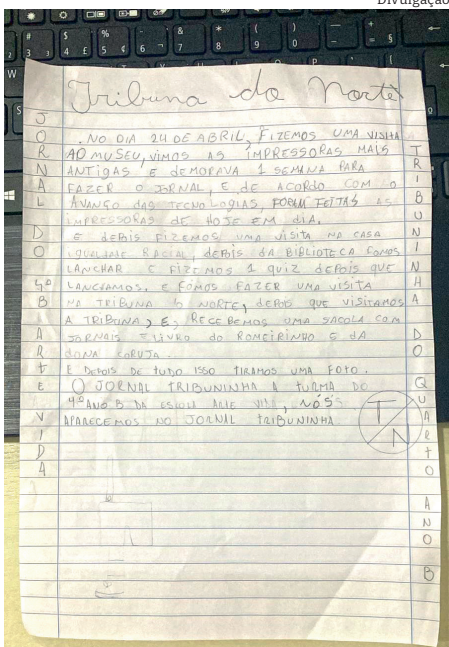 Divulgação
Tribuna do Norte
. NO DIA 24 DE ABRIL, FIZEMOS UMA VISITA
AO MUSEU, VIMOS AS IMPRESSORAS MAIS
ANTIGAS E DEMORAVA 1 SEMANA PARA
FAZER O JORNAL, E DE ACORDO COM O
AVANÇO DAS TECNOLOGIAS, FORAM FEITAS AS
IMPRESSORAS DE HOJE EM DIA.
E DEPOIS FIZEMOS UMA VISITA NA CASA
IGUALDADE RACIAL, DEPOIS DA BIBLIOTECA FOMOS
LANCHAR E FIZEMOS 1 QUIZ DEPOIS QUE
LANCHAMOS, E FOMOS FAZER UMA VISITA
NA TRIBUNA NORTE, DEPOIS QUE VISITAMOS
A TRIBUNA, E, RECEBEMOS UMA SACOLA COM
JORNAIS E LIVRO DO ROMEIRINHO E DA
DONA CORUJA.
E DEPOIS DE TUDO ISSO TIRAMOS UMA FOTO.
O JORNAL TRIBUNINHA A TURMA DO
4º ANO B DA ESCOLA ARTE VIDA, NÓS
APARECEMOS NO JORNAL TRIBUNINHA
T/N
JORNAL DO 4º B ARTE VIDA
TRIBUNINHA DO QUARTO ANO B